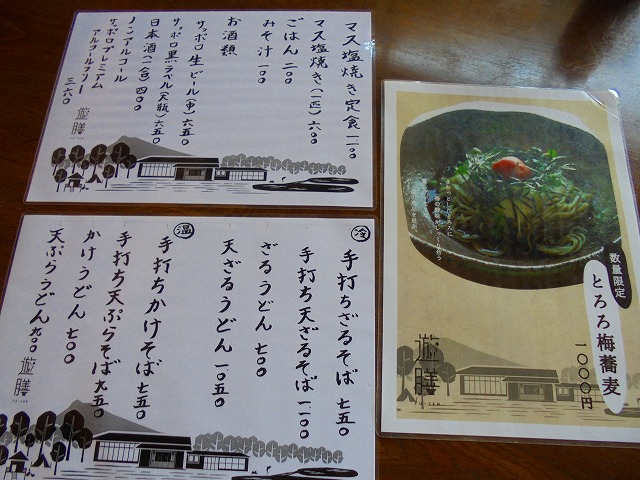 マス塩焼き定食 一一〇〇
マス塩焼き(一匹)六〇〇
ごはん 二〇〇
みそ汁 一〇〇
お酒類
サッポロ生ビール(中)六五〇
サッポロ黒ラベル(大瓶)六五〇
日本酒(一合)四〇〇
ノンアルコール
サッポロプレミアム
アルコールフリー
三六〇
遊膳
YU-ZEN
冷
手打ちざるそば 七五〇
手打ち天ざるそば 一一〇〇
ざるうどん 七〇〇
天ざるうどん 一〇五〇
温
手打ちかけそば 七五〇
手打ち天ぷらそば 九五〇
かけうどん 七〇〇
天ぷらうどん 九〇〇
遊膳
YU-ZEN
数量限定
とろろ梅蕎麦
一〇〇〇円
遊膳
YU-ZEN